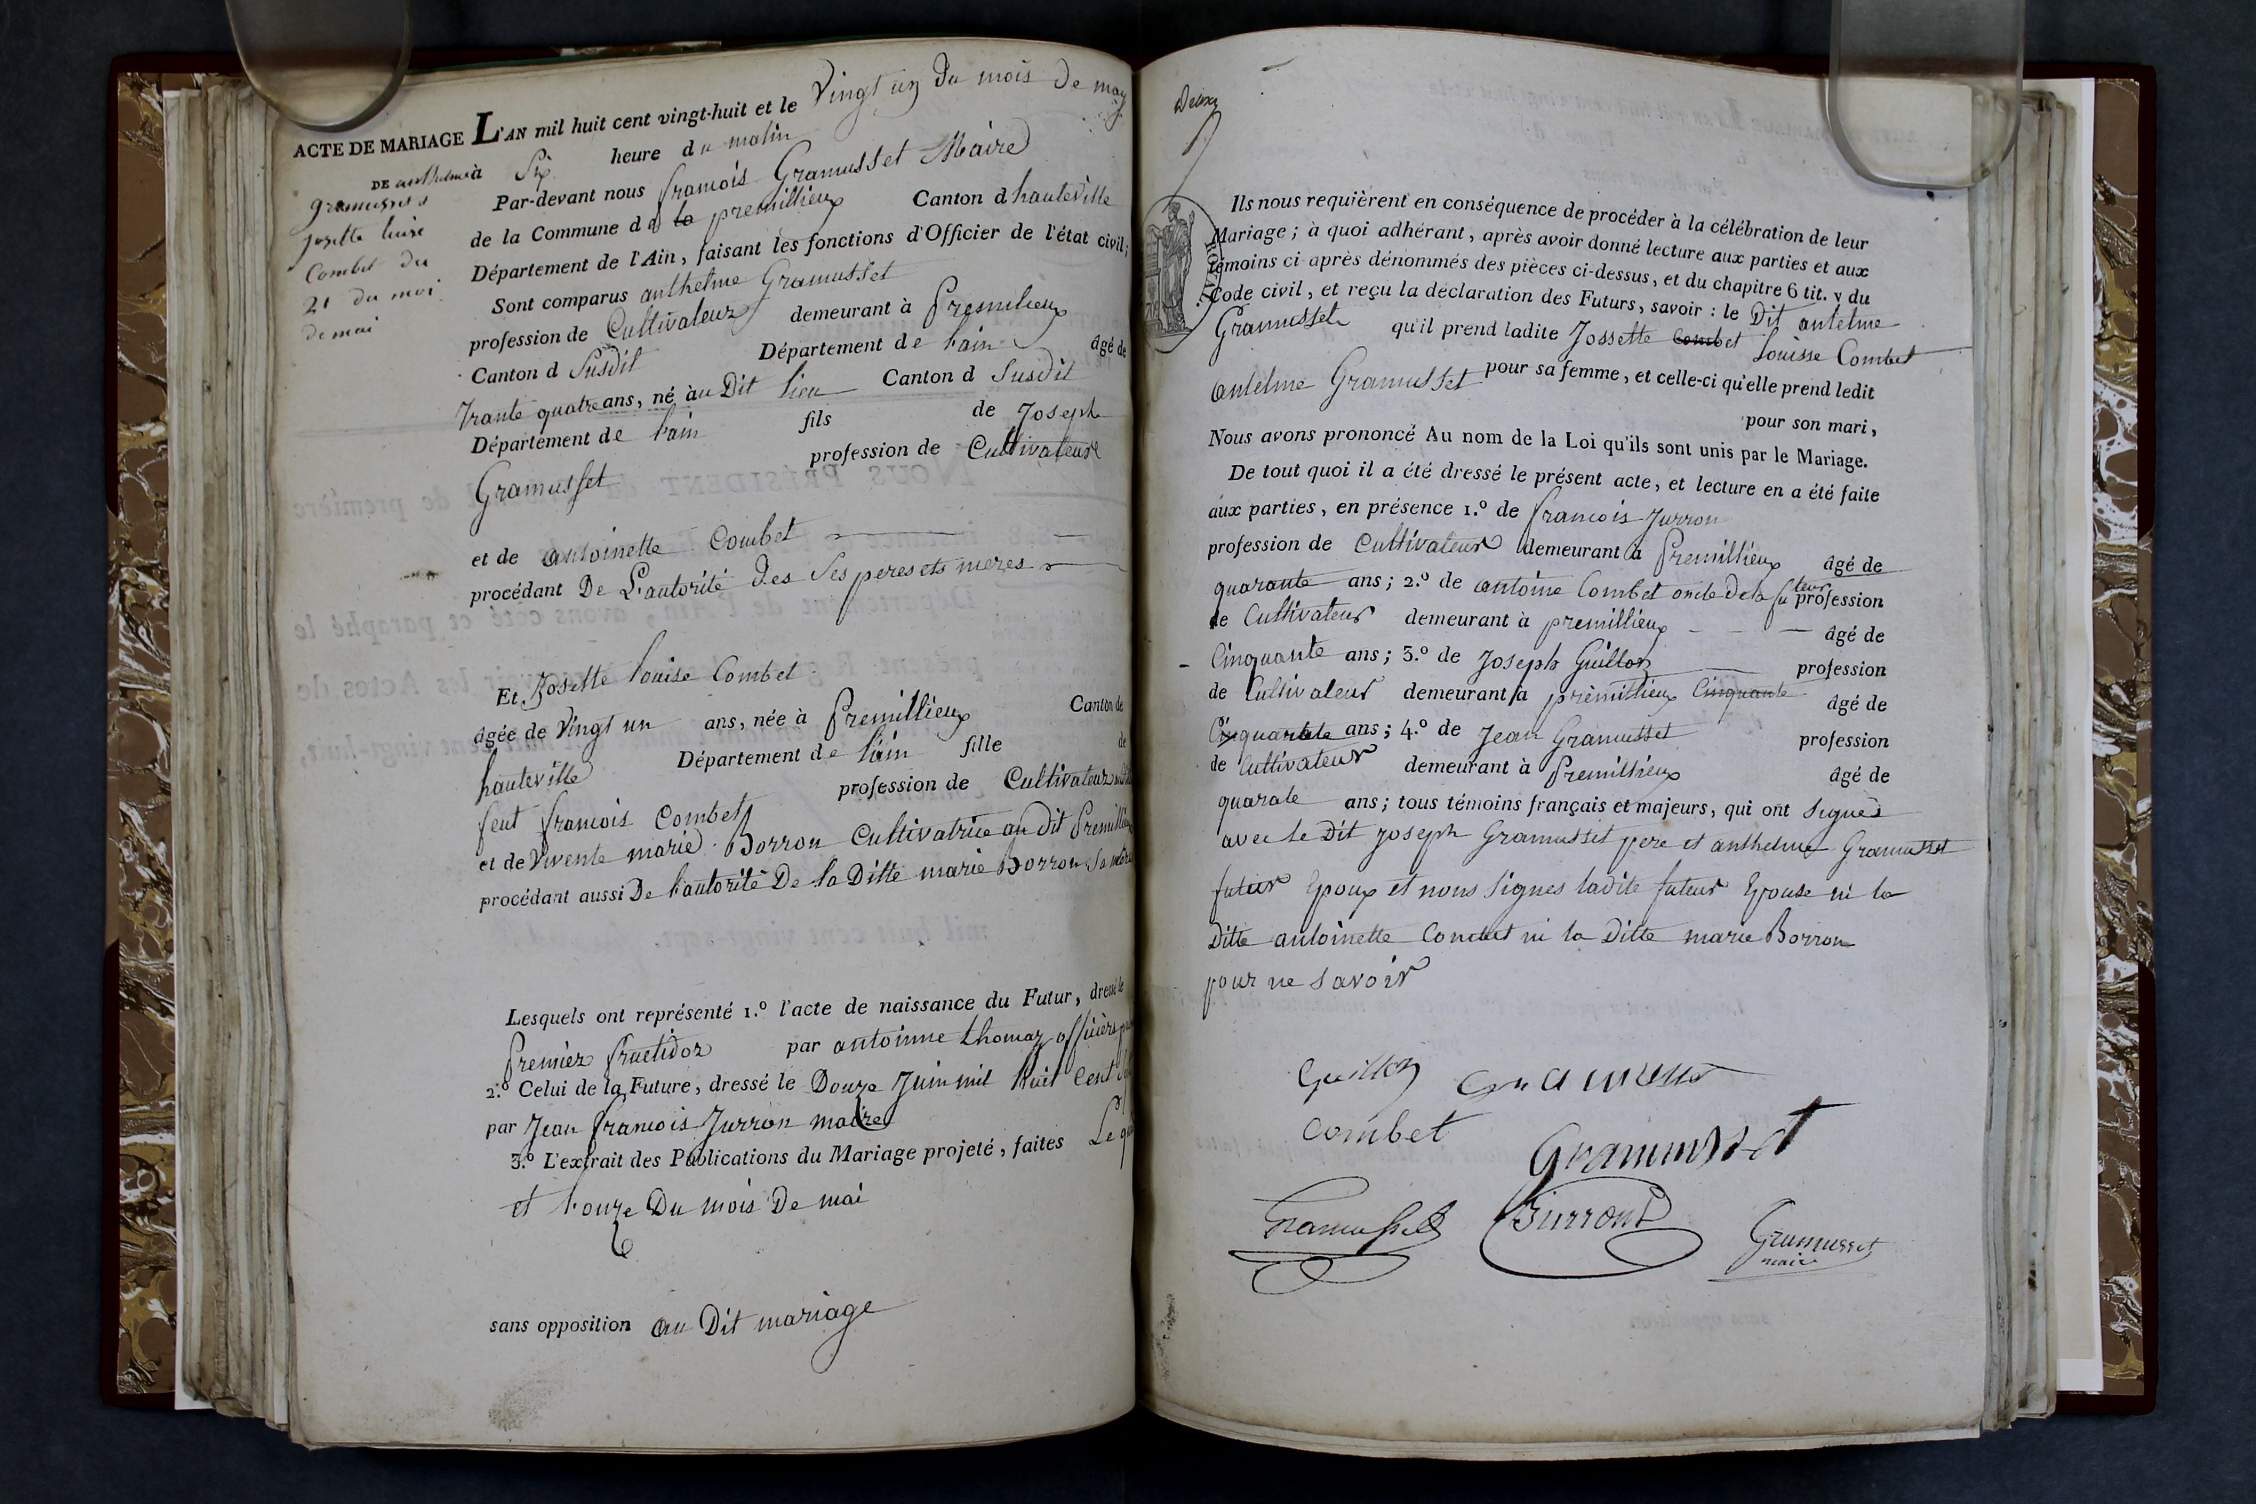 ACTE DE MARIAGE L'AN mil huit cent vingt-huit et le Vingt un du mois de may
DE anthelme à Six heure du matin
gramusset
josette luise
Combet du
21 du moi
de mai
Par-devant nous francois Gramusset Maire
de la Commune d la premillieux Canton d hauteville
Département de l'Ain, faisant les fonctions d'Officier de l'état civil;
Sont comparus anthelme Gramusset
profession de Cultivateur demeurant à Premilieux
Canton d Susdit Département de l'ain âgé de
trante quatre ans, né à au Dit lieu Canton d Susdit
Département de l'ain fils de Joseph
Gramusset profession de Cultivateur
et de antoinette Combet
procédant De L'autorité des Ses peres ets meres
Et Josette louise Combet
âgée de Vingt un ans, née à Premillieux Canton de
hauteville Département de l'ain fille de
feut francois Combet profession de Cultivateur
et de Vivente marie Borron Cultivatrice au dit Premillieux
procédant aussi De l'autorité De la Ditte marie Borron Sa mère
Lesquels ont représenté 1.º l'acte de naissance du Futur, dressé le
Premier fructidor par antoinne thomaz officiers
2.º Celui de la Future, dressé le Douze Juin mil huit Cent
par Jean francois Jurron maire
3.º L'extrait des Publications du Mariage projeté, faites Le
et l'onze Du mois De mai
sans opposition au Dit mariage
Deux
ROYAL.
Ils nous requièrent en conséquence de procéder à la célébration de leur
Mariage; à quoi adhérant, après avoir donné lecture aux parties et aux
témoins ci-après dénommés des pièces ci-dessus, et du chapitre 6 tit. v du
Code civil, et reçu la déclaration des Futurs, savoir : le Dit antelme
Gramusset qu'il prend ladite Jossette Combet Louisse Combet
pour sa femme, et celle-ci qu'elle prend ledit
antelme Gramusset pour son mari,
Nous avons prononcé Au nom de la Loi qu'ils sont unis par le Mariage.
De tout quoi il a été dressé le présent acte, et lecture en a été faite
aux parties, en présence 1.º de francois Jurron
profession de Cultivateur demeurant à Premillieux âgé de
quarante ans; 2.º de antoine Combet oncle de la futeur profession
de Cultivateur demeurant à premillieux âgé de
Cinquante ans; 3.º de Joseph Guillon profession
de Cultivateur demeurant à premillieux Cinquante âgé de
Cinquarate ans; 4.º de Jean Gramusset profession
de Cultivateur demeurant à Premillieux âgé de
quarate ans; tous témoins français et majeurs, qui ont signes
avec le Dit Joseph Gramusset pere et anthelme Gramusset
futur Epoux et nous Signes ladite futeur Epouse ni la
Ditte antoinette Combet ni la Ditte marie Borron
pour ne Savoir
Guillon
Combet
Gramusset
Gramusset
Jurront
Gramusset
maire